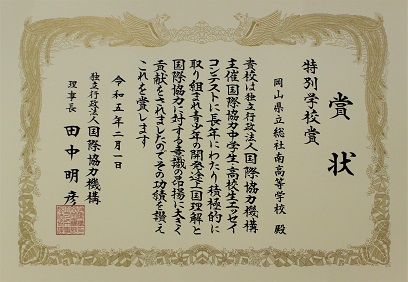 賞状
特別学校賞
岡山県立総社南高等学校 殿
貴校は独立行政法人国際協力機構
主催国際協力中学生・高校生エッセイ
コンテストに長年にわたり積極的に
取り組まれ青少年の開発途上国理解と
国際協力に対する意識の昂揚に大きく
貢献をされましたのでその功績を讃え
これを賞します
令和五年二月一日
独立行政法人国際協力機構
理事長 田中明彦